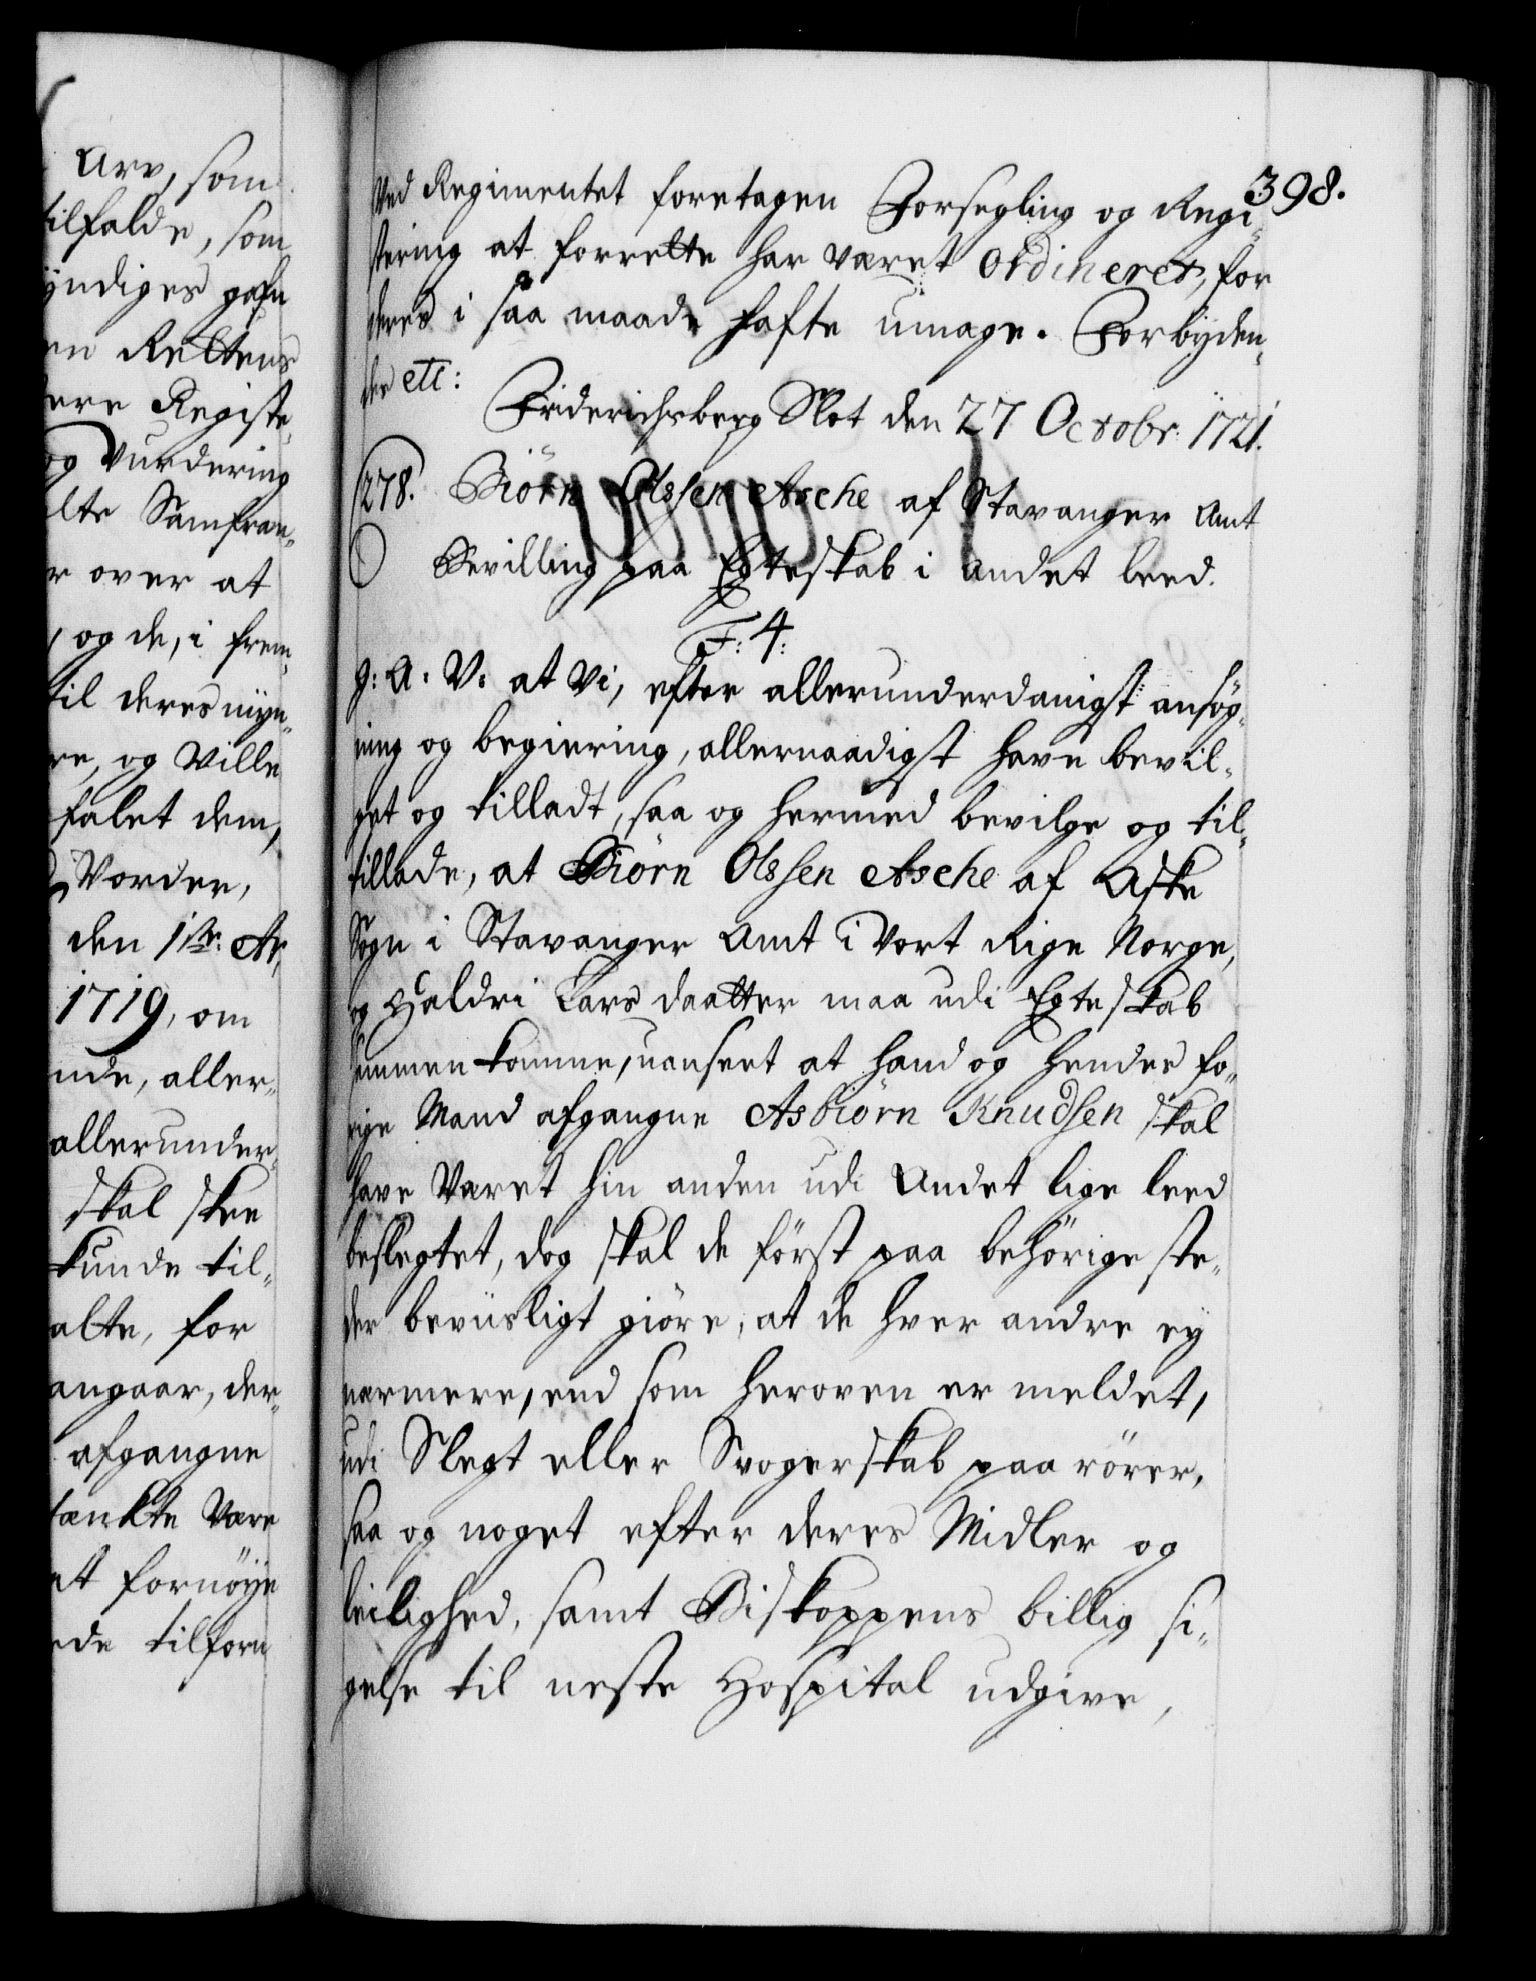 Arv, som
tilfalde, som
yndiges gafn
en Rettens
ere Registe-
og Vurdering
lte Samfran-
r over at
, og de, i frem-
til deres myn-
re, og Ville
falet dem,
Vorder,
den 1ste Ar,
1719, om
nde, aller-
allerunder-
skal skee
kunde til-
alte, for
angaar, der-
afgangne
tænkte Være
et fornöye
ede tilforn
398.
Ved Regimentet foretagen Forsegling og Regi-
stering at forrette har været Ordineret, for
deres i saa maade hafte umage. Forbyden-
de etc:
Friderichsberg Slot den 27 Octobr: 1721.
278. Biörn Olssen Asche af Stavanger Amt
Bevilling paa Egteskab i andet leed.
F: 4:
G: A: V: at Vi, efter allerunderdanigst ansög-
ning og begiering, allernaadigst have bevil-
get og tilladt, saa og hermed bevilge og til-
tillade, at Biörn Olssen Asche af Aske
Sogn i Stavanger Amt i Vort Rige Norge,
og Haldri Lars daatter maa udi Egteskab
sammen komme, uanseet at hand og hendes fo-
rige Mand afgangne Asbiörn Knudsen skal
have Været hin anden udi Andet lige leed
beslegtet, dog skal de först paa behörige ste-
der beviisligt giöre, at de hver andre ey
nærmere, end som heroven er meldet,
udi Slegt eller Svogerskab paa rörer,
saa og noget efter deres Midler og
leilighed, samt Biskoppens billig si-
gelse til neste Hospital udgive,